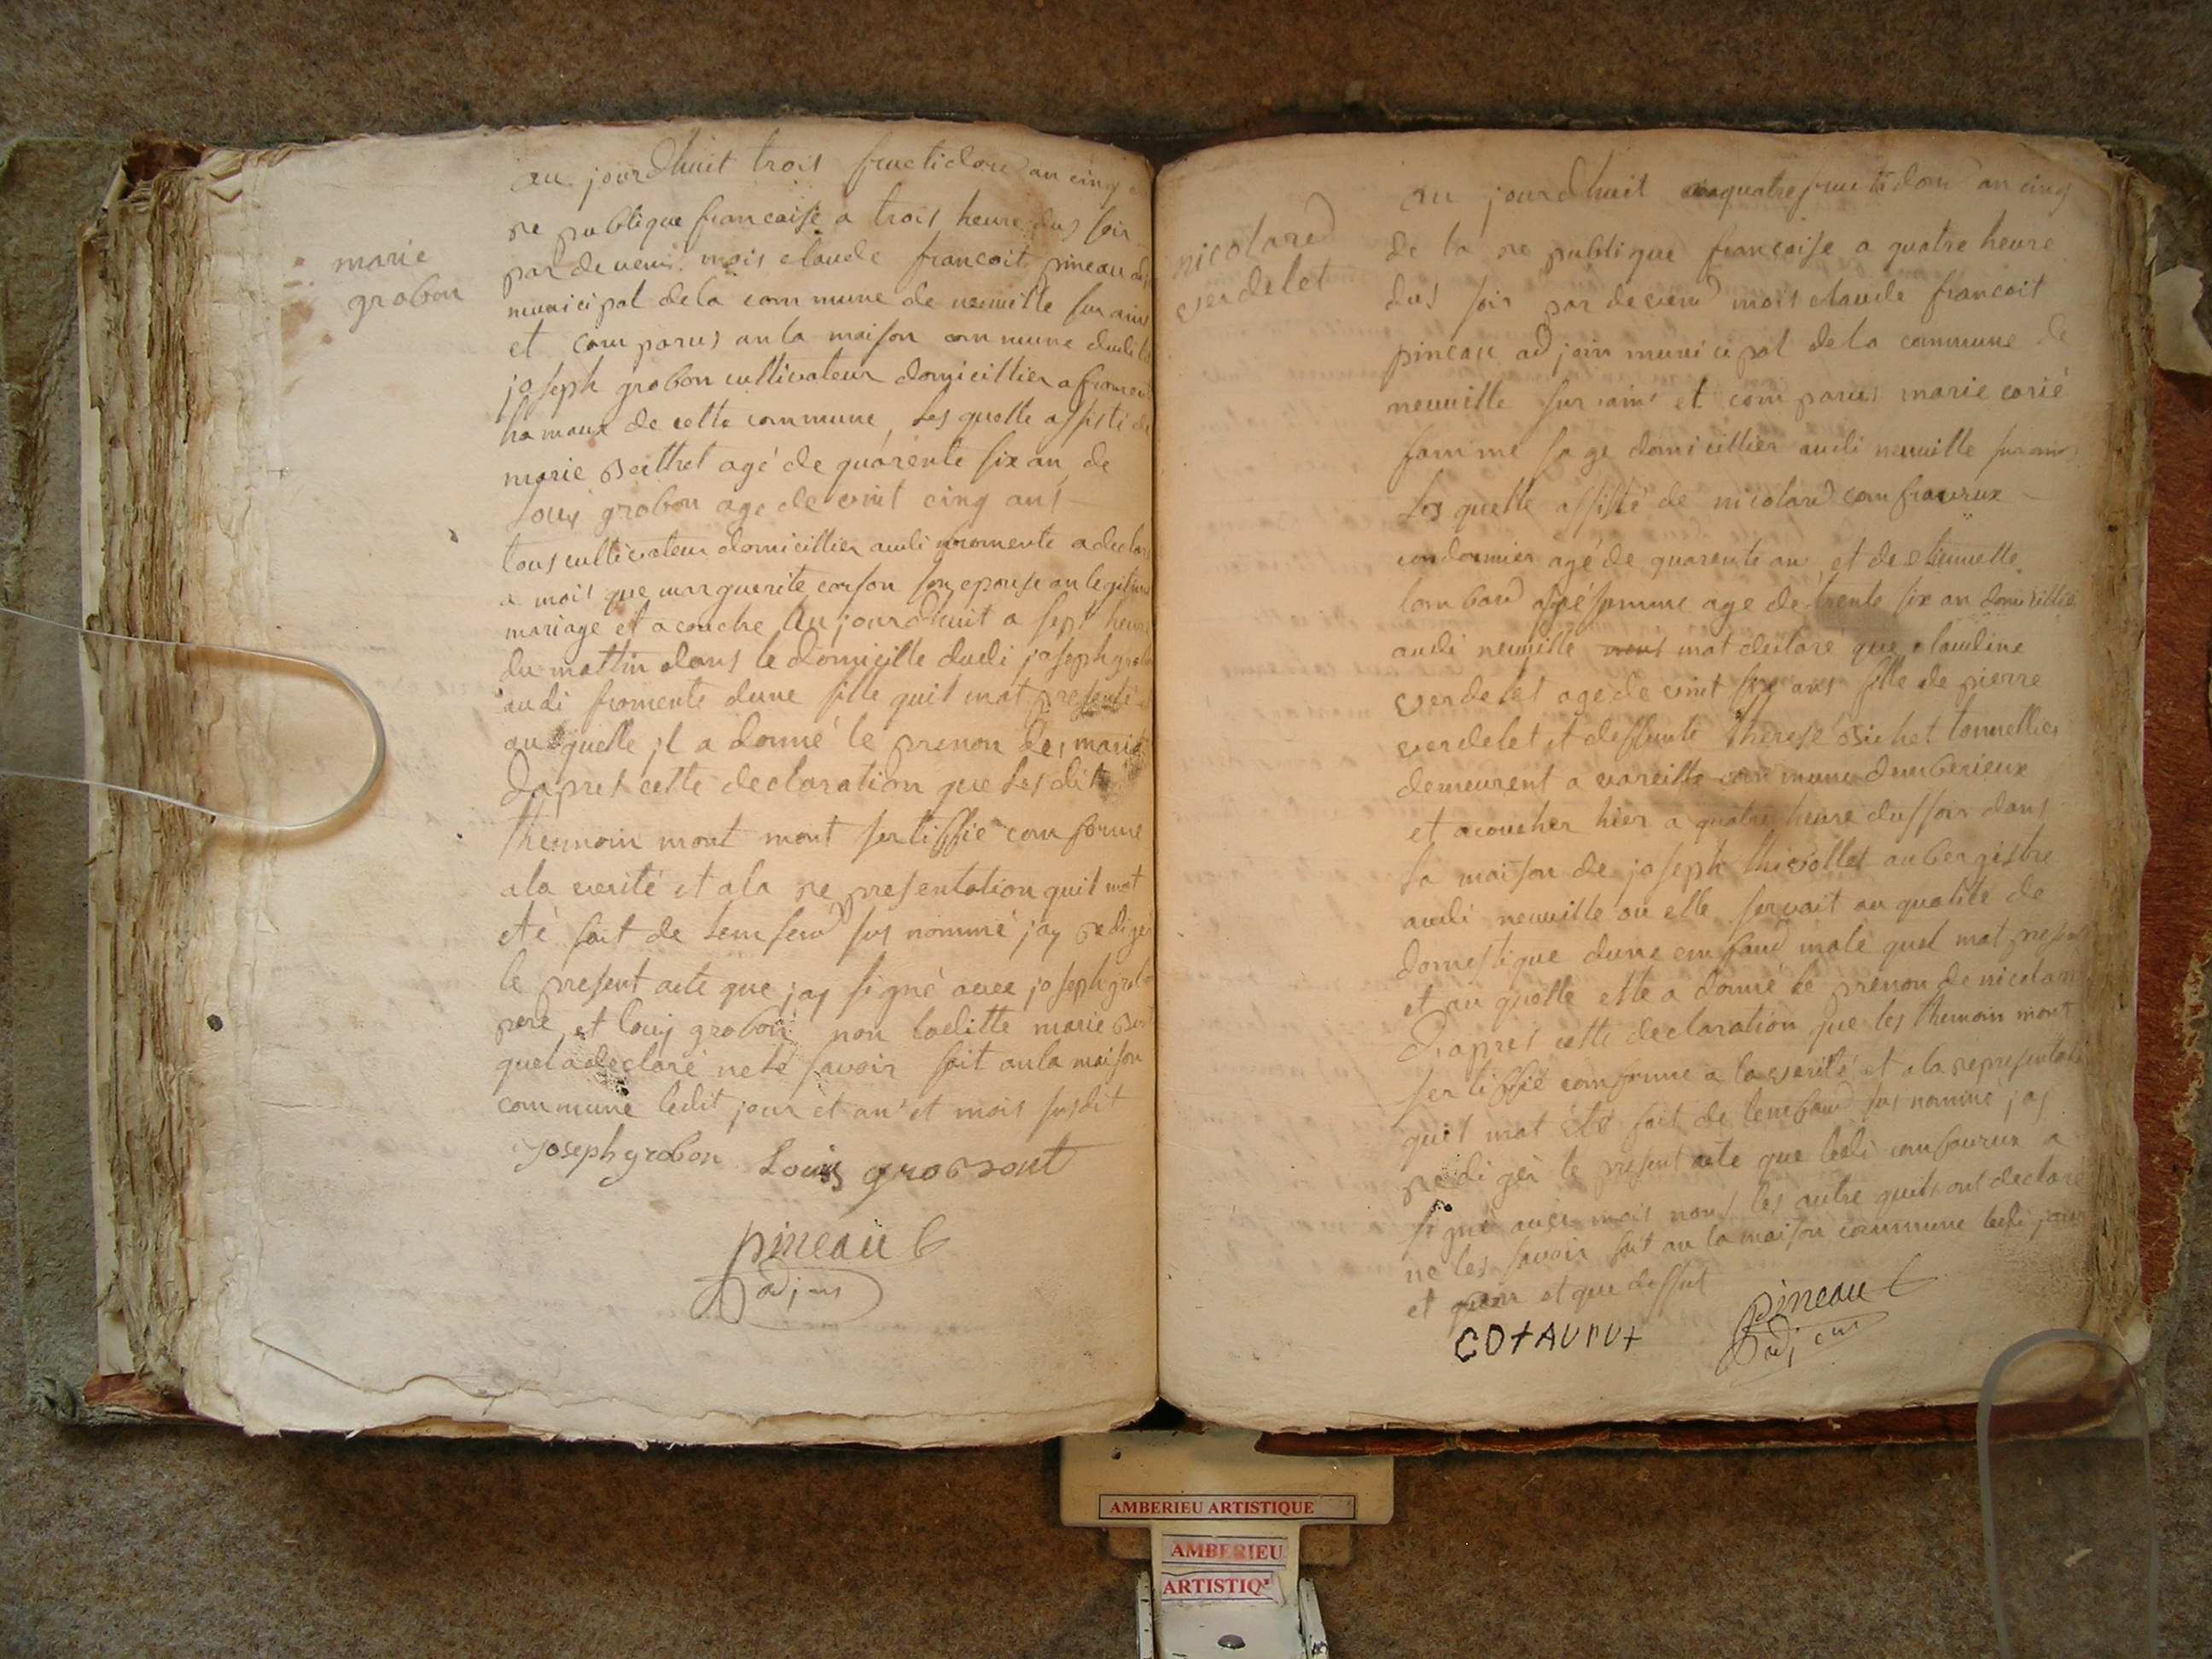 marie
grobon
au jourdhuit trois fructidord an cinq
re publique francaise a trois heure dus soir
par devend mois claude francoit pineau
municipal dela commune de neuville sur ains
et comparus an la maison commune dudi
joseph grobon cultivateur domicillier a froment
hamaux de cette commune, les quelle assisté de
marie berthet agé de quarente six an de
Louy grobon age de vint cinq ans
tous cultivateur domicillier audi fromente a declare
a mois que marguerite corson son epouse an legitime
mariage et acouche Aujourdhuit a sept heure
du mattin dans le domicille dudi joseph
audi fromente dune fille quil mat presenté
au quelle il a donné le prenon de marie
Dapres cette declaration que les dit
themoin mont mont sertiffié conforme
ala verité et ala representation quil mat
eté fait de lemfend sus nommé jay redigér
le present acte que jay signé avec joseph
pere, et louy grobon non laditte marie
quel a declaré ne le savoir fait an la maison
commune ledit jour et an et mois susdit
Joseph grobon Louis grobont
pineau C
adjoins
nicolard
verdelet
au jourdhuit quatre fructidord an cinq
de la re publique francaise a quatre heure
dus soir par devend mois claude francoit
pineau adjoin municipal dela commune de
neuville sur ains et comparus marie corié
famme sage domicillier audi neuville sur ains
Les quelle assisté de nicolard comfraurux
cordonnier agé de quarente an et de etiennette
lombard femme age de trente six an domicillier
audi neuville mat declaré que claudine
verdelet age de vint six ans fille de pierre
verdelet et deffunte therese bichet tonnellier
demeurent a vareille commune damberieux
et acoucher hier a quatre heure dus soir dans
la maison de joseph thivollet aubergistre
audi neuville ou elle servoit an qualité de
domestique dune emfand male quel mat
et au quelle elle a donné le prenon de nicolard
Dapres cette declaration que les themoin mont
sertiffié conforme a la verité et ala representation
quil mat été fait de lemfand sus nommé jay
redigér le present acte que ledi comfourux a
signé avec mois nons les autre quils ont declaré
ne les savoir fait an la maison commune ledi jour
et que dessus
COTAURUX
pineau C
adjoins
AMBERIEU ARTISTIQUE
AMBERIEU
ARTISTIQ